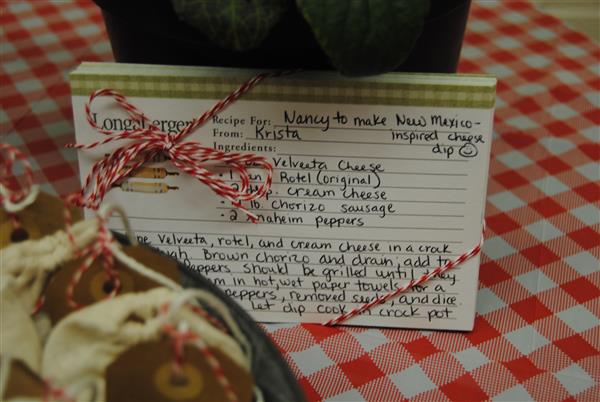 Longaberger
Recipe For: Nancy to make New Mexico-
inspired cheese
dip
From: Krista
Ingredients:
Velveeta Cheese
· 1 can Rotel (original)
cream cheese
lb. Chorizo sausage
· 2 Anaheim peppers
Velveeta, rotel, and cream cheese in a crock
Brown chorizo and drain; add to
peppers should be grilled until
in hot, wet paper towels for a
peppers, removed seeds, and dice.
Let dip cook in crock pot